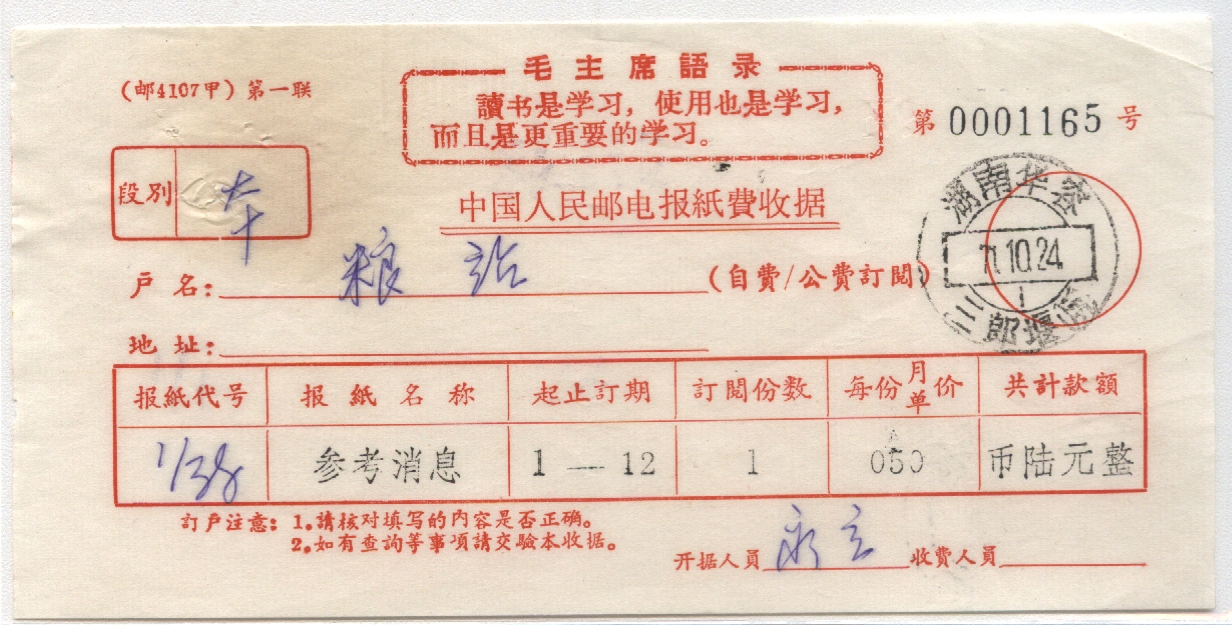 (邮4107甲)第一联
毛主席語录
讀书是学习，使用也是学习，
而且是更重要的学习。
第 0001165 号
段別
中国人民邮电报紙費收据
湖南华容
71.10.24
1
三郎堰
户名： 粮站 (自費/公費訂閱)
地址：
报紙代号 报紙名称 起止訂期 訂閱份数 每份月单价 共計款額
1/38 参考消息 1 — 12 1 050 币陆元整
訂户注意：1.請核对填写的内容是否正确。
2.如有查詢等事項請交驗本收据。
开据人員 收費人員